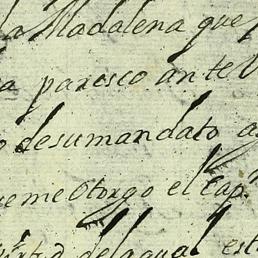 la Madalena que
a paresco ante V
o desumandato a
ueme Otorgo el Cap.n
virtd. dela qual est